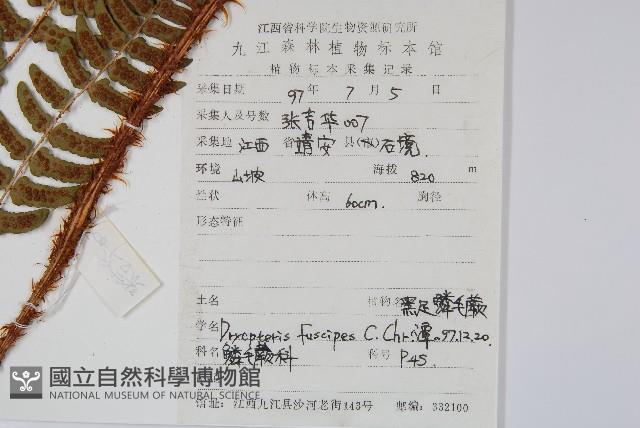 江西省科学院生物资源研究所
九江森林植物标本馆
植物标本采集记录
采集日期 97年 7 月 5 日
采集人及号数 张吉华 007
采集地 江西 省 靖安 县(市) 石境.
环境 山坡 海拔 820 m
性状 体高 60cm. 胸径
形态特征
土名 植物名 黑足鳞毛蕨
学名 Dryopteris fuscipes C. Chr. 潭.97.12.20.
科名 鳞毛蕨科 科号 P45
國立自然科學博物館
NATIONAL MUSEUM OF NATURAL SCIENCE
江西九江县沙河老街143号 邮编: 332100